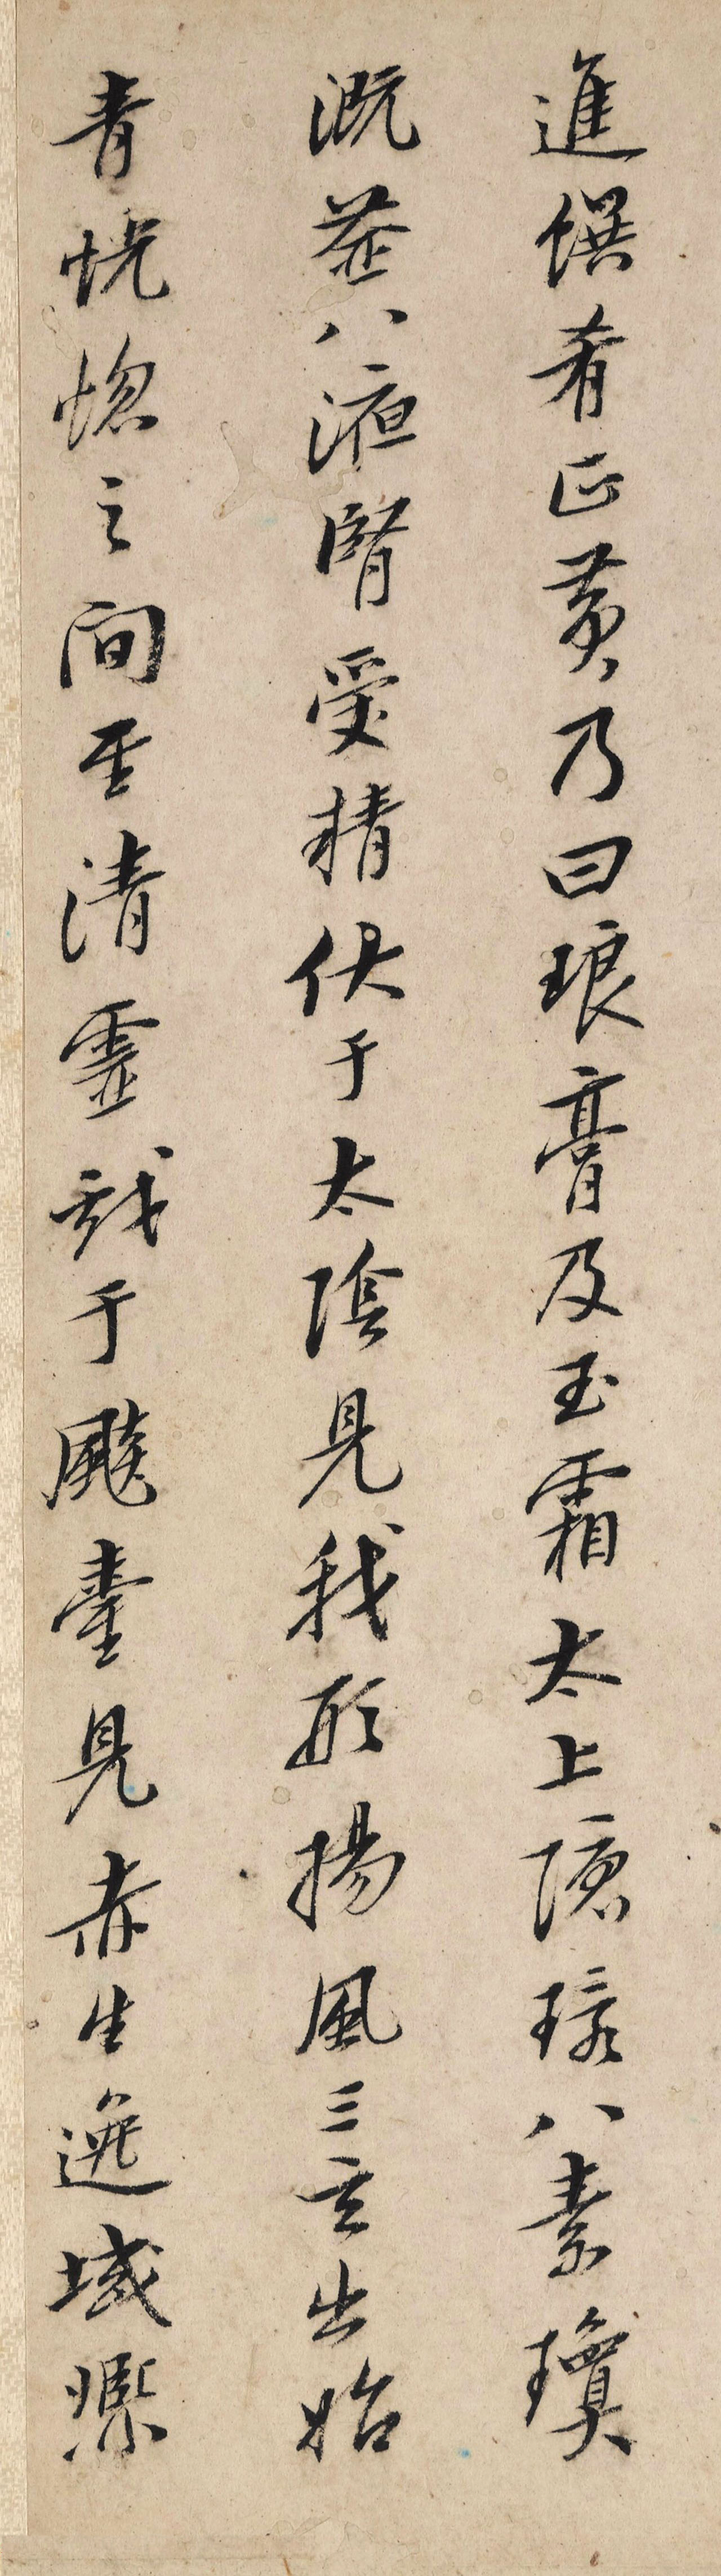 進饌肴正黃乃曰琅膏及玉霜太上隱環八素瓊
溉益八液腎受精伏于太陰見我形揚風三玄出始
青恍惚之間至清靈戲于飈臺見赤生逸域熙